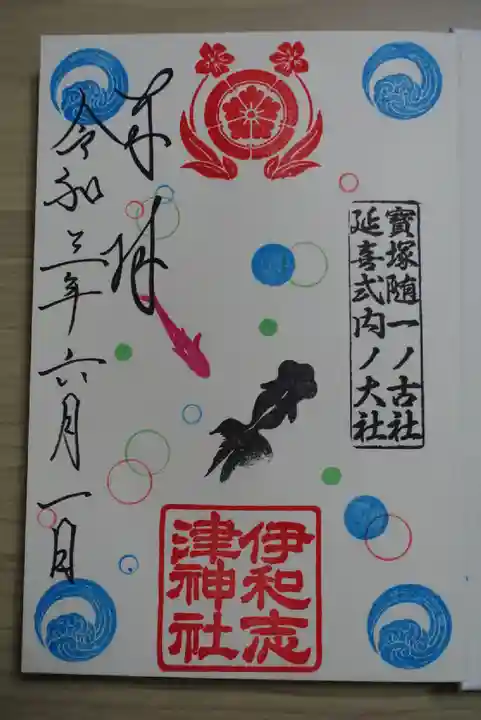 寶塚随一ノ古社
延喜式内ノ大社
伊和志
津神社
奉拝
令和三年六月一日